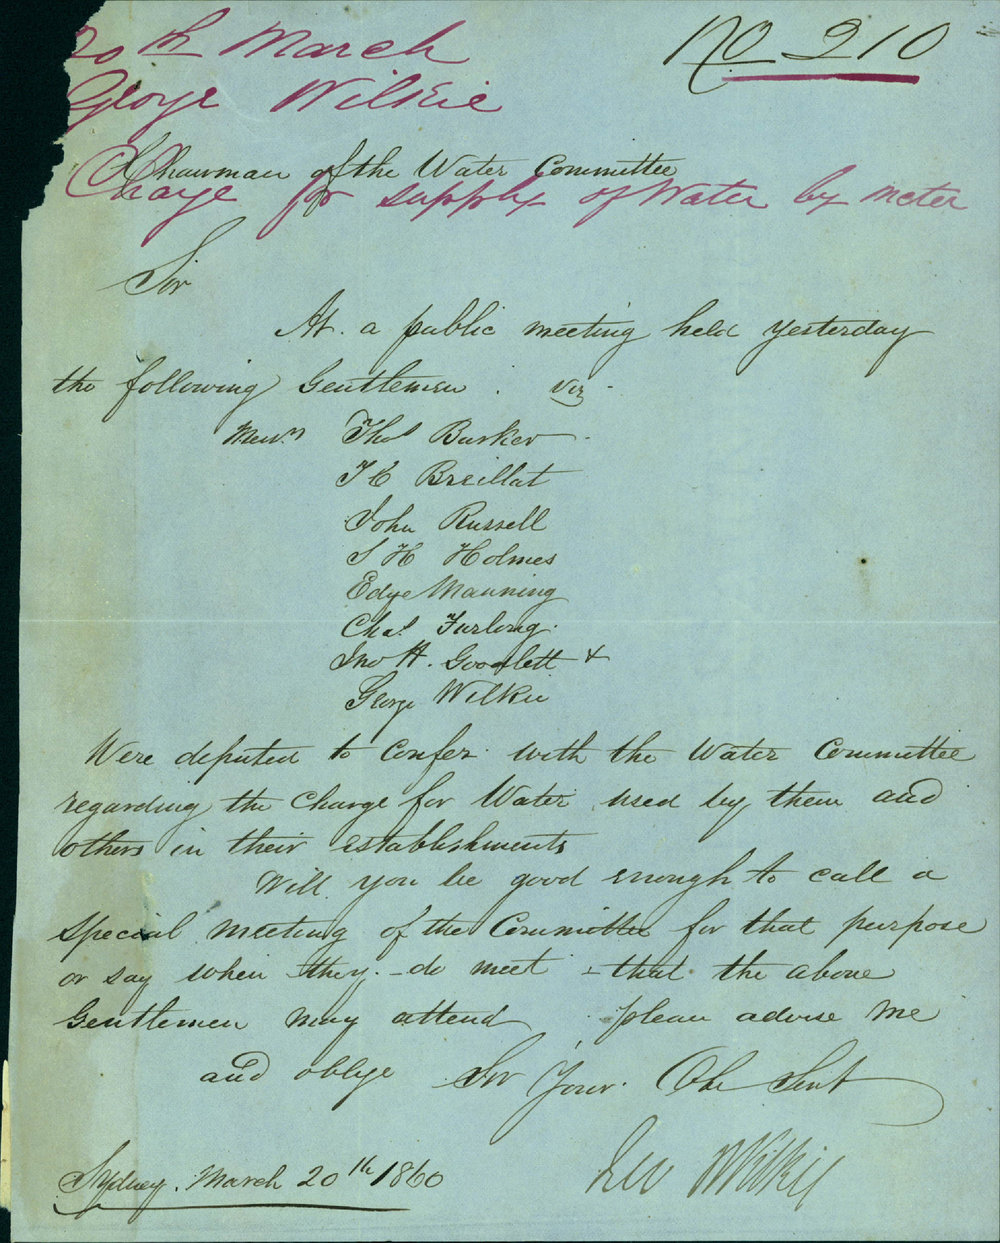 20th March
No 210
George Wilkie
Chairman of the Water Committee
Charge for supply of Water by meter
Sir
At a public meeting held yesterday
the following Gentlemen. Viz
Messrs Thos Barker
T C Breillat
John Russell
S H Holmes
Edye Manning
Chas Furlong
Jno H. Goodlett &
George Wilkie
Were deputed to Confer with the Water Committee
regarding the Charge for Water used by them and
others in their establishments
Will you be good enough to call a
special meeting of the Committee for that purpose
or say when they do meet that the above
Gentlemen may attend please advise me
and oblige Sir Your Obe Sevt
Geo Wilkie
Sydney. March 20th 1860